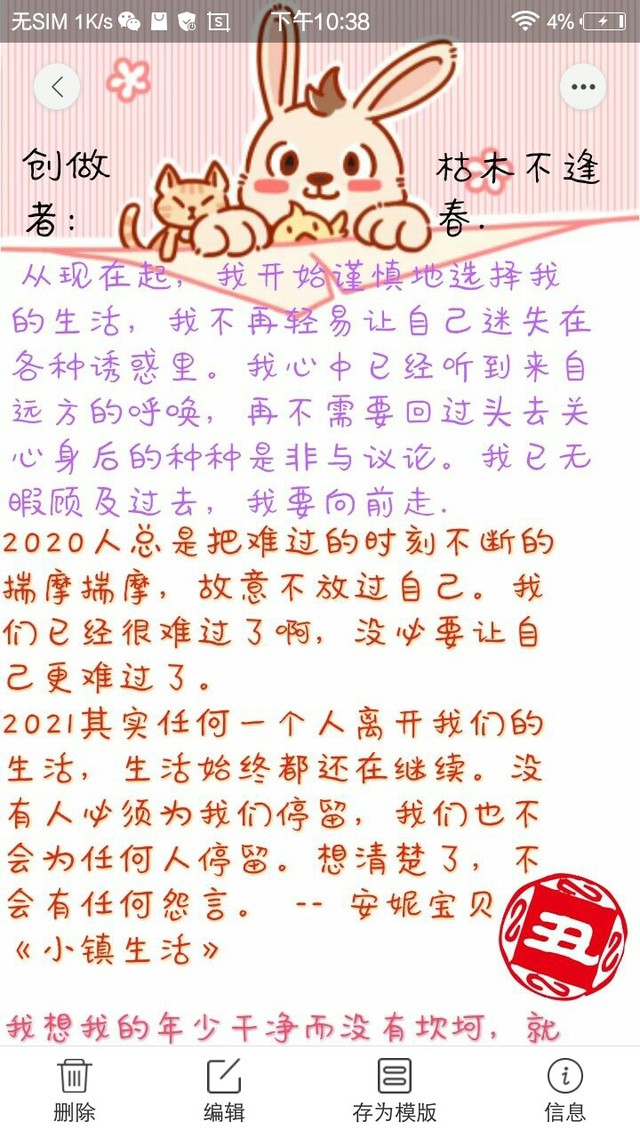 无SIM 1K/s 下午10:38 4%
创做者：
枯木不逢春.
从现在起，我开始谨慎地选择我
的生活，我不再轻易让自己迷失在
各种诱惑里。我心中已经听到来自
远方的呼唤，再不需要回过头去关
心身后的种种是非与议论。我已无
暇顾及过去，我要向前走.
2020人总是把难过的时刻不断的
揣摩揣摩，故意不放过自己。我
们已经很难过了啊，没必要让自
己更难过了。
2021其实任何一个人离开我们的
生活，生活始终都还在继续。没
有人必须为我们停留，我们也不
会为任何人停留。想清楚了，不
会有任何怨言。 -- 安妮宝贝
《小镇生活》
丑
我想我的年少干净而没有坎坷，就
删除 编辑 存为模版 信息